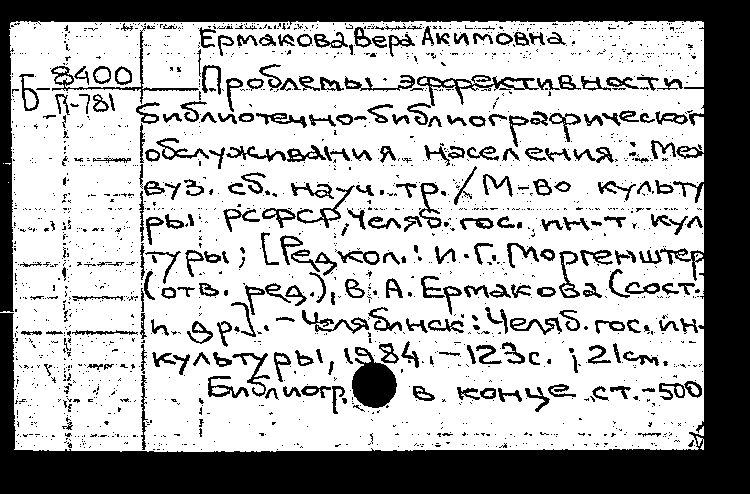 Ермакова, Вера Акимовна.
Б 8400 " Проблемы эффективности
П-781
библиотечно-библиографическог
обслуживания населения : Меж
вуз. сб. науч. тр. / М-во культу
ры РСФСР, Челяб. гос. ин-т. кул
туры ; [Редкол.: И.Г. Моргенштер
(отв. ред.), В.А. Ермакова (сост.
и др.]. - Челябинск : Челяб. гос. ин-
культуры, 1984. - 123с. ; 21см.
Библиогр. в конце ст. - 500